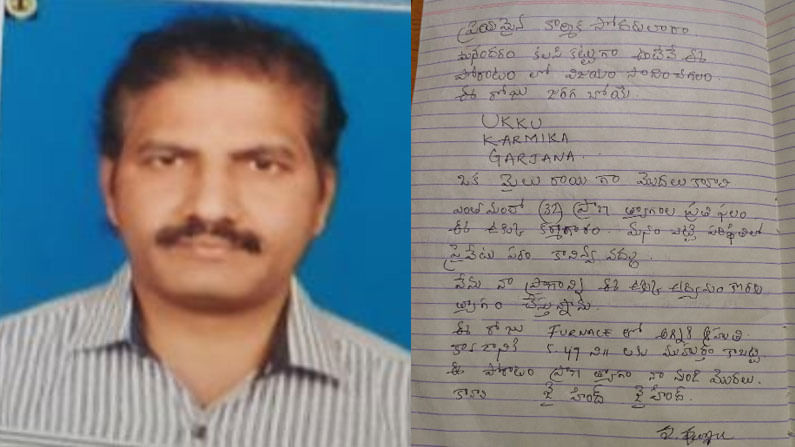 ప్రియమైన కార్మిక సోదరులారా
మనందరం కలసి కట్టుగా ఉంటేనే ఈ
పోరాటం లో విజయం సాధించగలం.
ఈ రోజు జరగ బోయే
UKKU
KARMIKA
GARJANA.
ఒక మైలు రాయి గా మొదలు కావాలి
ఎంతో మందో (32) ప్రాణ త్యాగాల ప్రతి ఫలం
ఈ ఉక్కు కర్మాగారం. మనం ఎట్టి పరిస్థితిలో
ప్రైవేటు పరం కానివ్వ వద్దు.
నేను నా ప్రాణాన్ని ఈ ఉక్కు ఉద్యమం కొరకు
త్యాగం చేస్తున్నాను.
ఈ రోజు FURNACE లో అగ్నికి ఆహుతి
కావడానికి 5.49 ని॥ లకు ముహూర్తం కాబట్టి
ఈ పోరాటం ప్రాణ త్యాగం నా నుండి మొదలు.
కావాలి జై హింద్ జై హింద్.